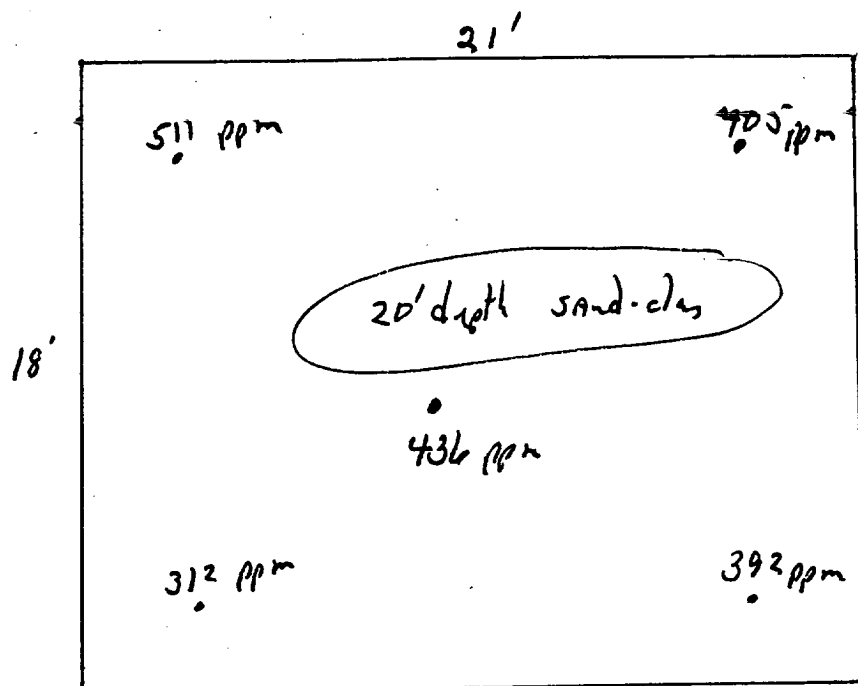 21'
511 ppm
405 ppm
20' depth sand-clay
18'
436 ppm
312 ppm
392 ppm